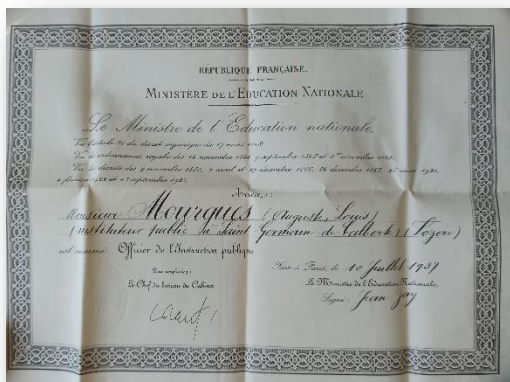 RÉPUBLIQUE FRANÇAISE.
MINISTÈRE DE L'EDUCATION NATIONALE
Le Ministre de l'Education nationale,
Vu l'article 32 du décret organique du 17 mars 1808
Vu les ordonnances royales des 14 novembre 1844, 9 septembre 1845 et 1er novembre 1846;
Vu les décrets des 9 décembre 1850, 7 avril et 27 décembre 1866, 24 décembre 1885,
4 1922 et 13 septembre 1921.
Arrête:
Monsieur Mourgues (Auguste, Louis)
instituteur public à Saint Germain de Calberte (Lozère)
est nommé Officier de l'Instruction publique
Fait à Paris, le 10 Juillet 1937
Pour ampliation:
Le Ministre de l'Education Nationale,
Le Chef du bureau du Cabinet
Signé: Jean Zay